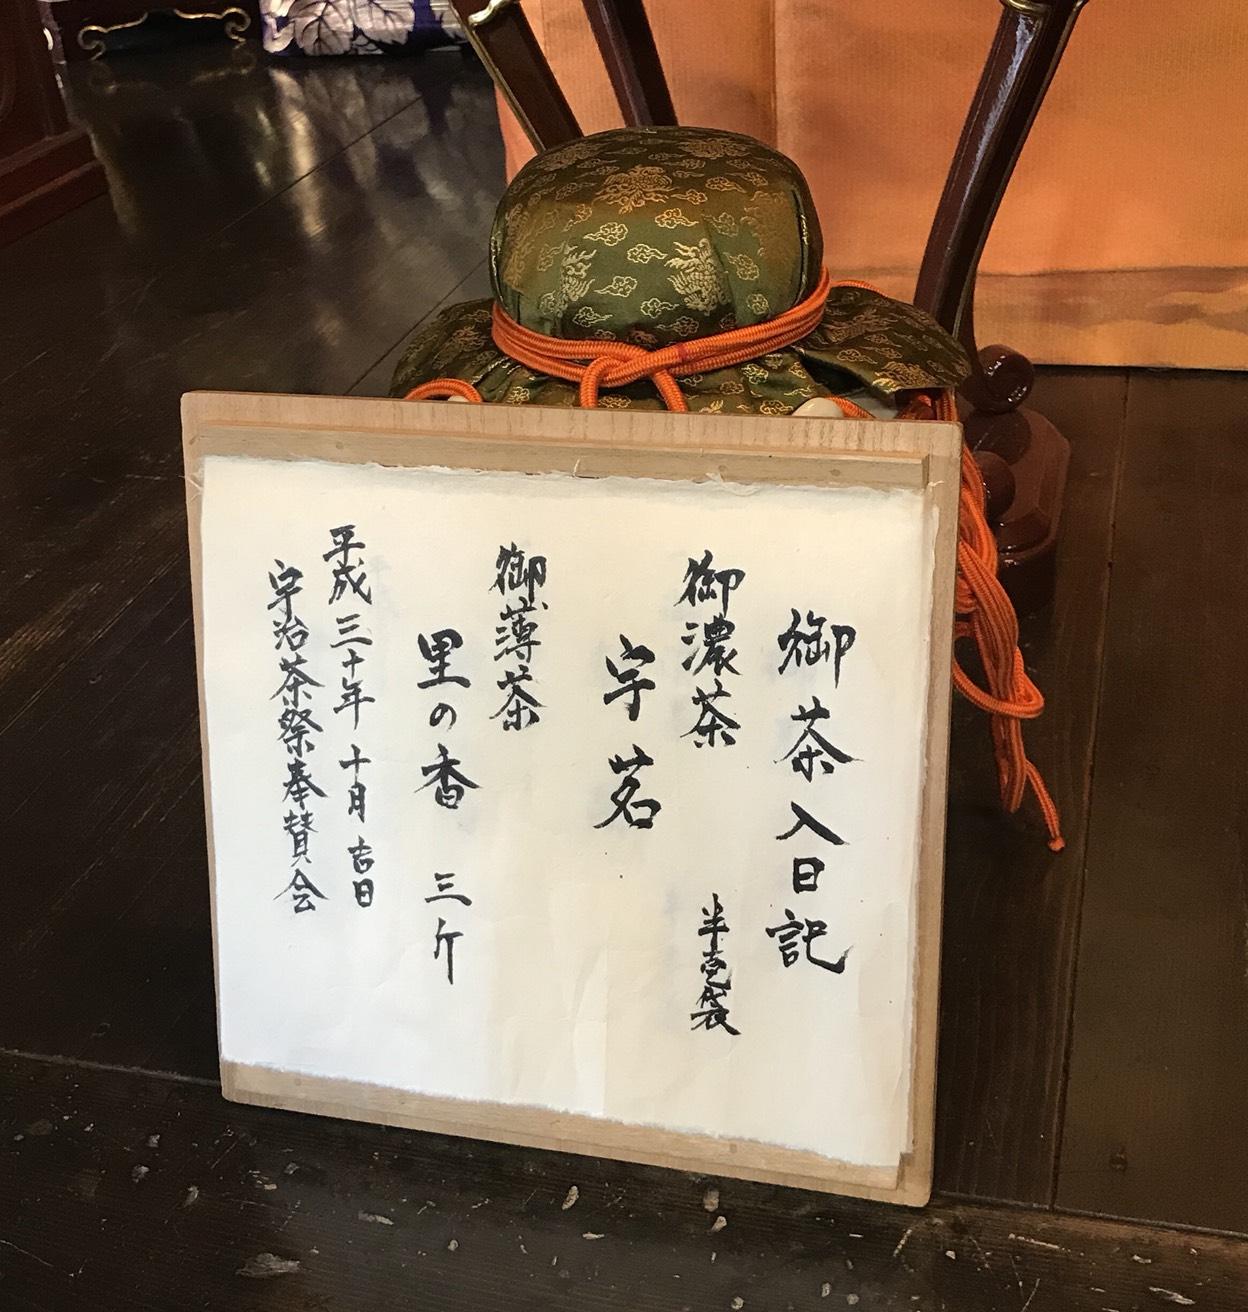 御茶入日記
御濃茶 半壱袋
宇茗
御薄茶
里の香 三斤
平成三十年十月吉日
宇治茶祭奉賛会